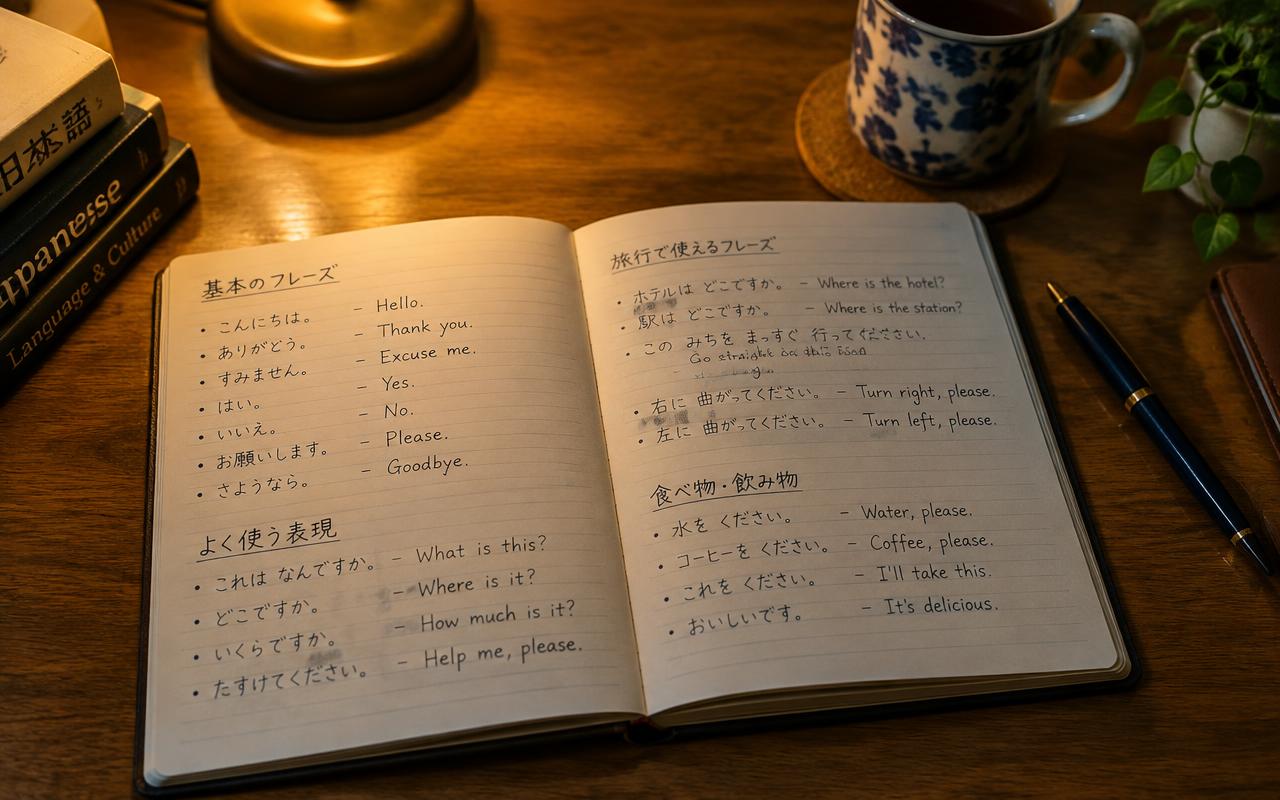 日本語
Japanese
Language & Culture
基本のフレーズ
• こんにちは。 – Hello.
• ありがとう。 – Thank you.
• すみません。 – Excuse me.
• はい。 – Yes.
• いいえ。 – No.
• お願いします。 – Please.
• さようなら。 – Goodbye.
よく使う表現
• これは なんですか。 – What is this?
• どこですか。 – Where is it?
• いくらですか。 – How much is it?
• たすけてください。 – Help me, please.
旅行で使えるフレーズ
• ホテルは どこですか。 – Where is the hotel?
• 駅は どこですか。 – Where is the station?
• この みちを まっすぐ 行ってください。
Go straight
• 右に 曲がってください。 – Turn right, please.
• 左に 曲がってください。 – Turn left, please.
食べ物・飲み物
• 水を ください。 – Water, please.
• コーヒーを ください。 – Coffee, please.
• これを ください。 – I'll take this.
• おいしいです。 – It's delicious.